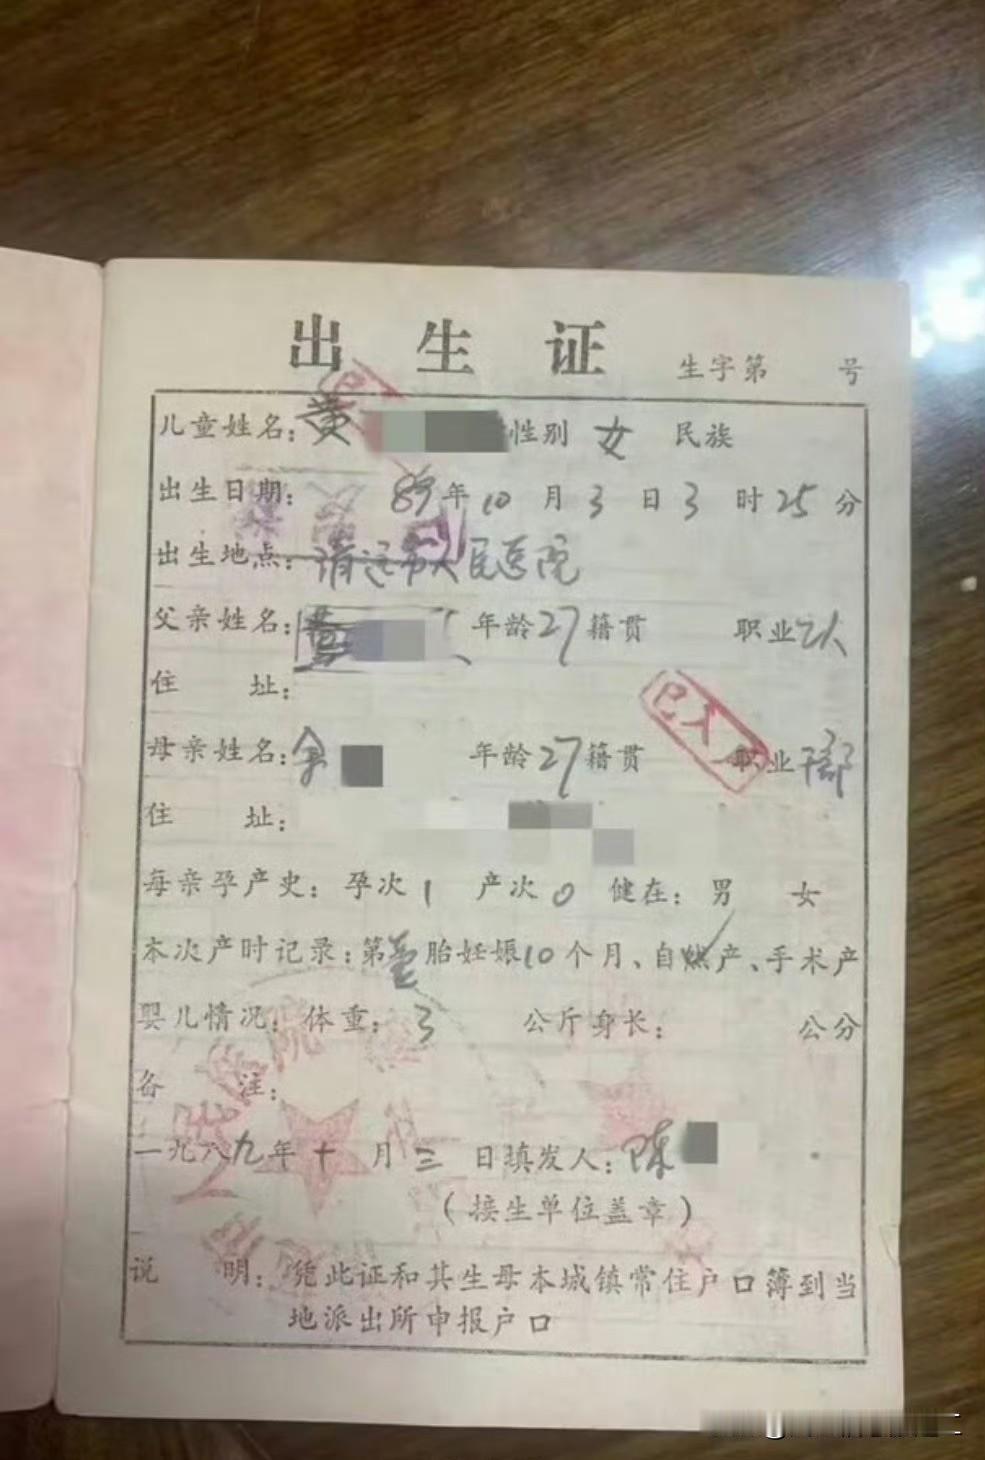 出生证 生字第 号
儿童姓名：黄 性别 女 民族
出生日期： 89年10月3日3时25分
出生地点：清远市人民医院
父亲姓名： 年龄27籍贯 职业工人
住 址：
母亲姓名：余 年龄27籍贯 职业干部
住 址：
每亲孕产史：孕次1 产次0 健在：男 女
本次产时记录：第壹胎妊娠10个月、自然产、手术产
婴儿情况：体重：3 公斤身长： 公分
备 注：
一九八九年十月三日填发人：陈
（接生单位盖章）
说 明：凭此证和其生母本城镇常住户口簿到当
地派出所申报户口
已入